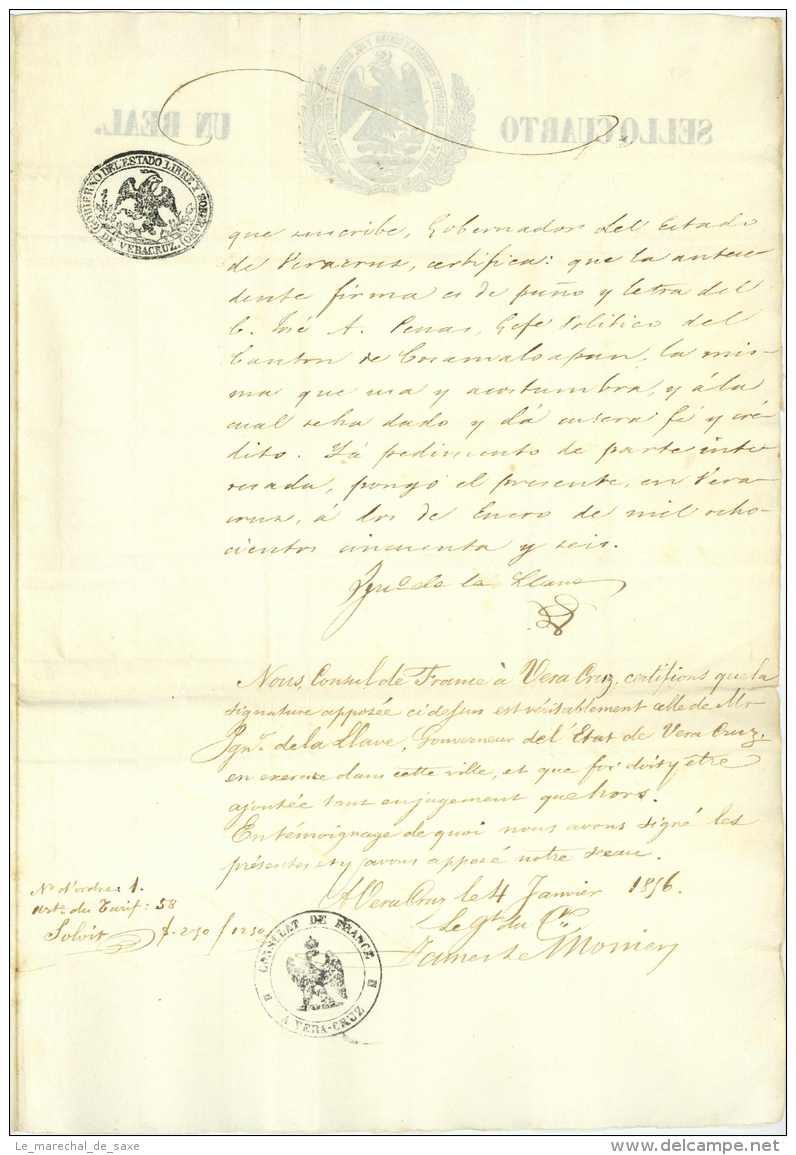 SELLO CUARTO UN REAL.
GOBIERNO DEL ESTADO LIBRE Y SOBERANO DE VERACRUZ.
que suscribe, Gobernador del Estado
de Veracruz, certifica: que la antece-
dente firma es de puño y letra del
C. José A. Penas, Gefe Politico del
Canton de Cosamaloapan, la mis-
ma que usa y acostumbra, y á la
cual se ha dado y dá entera fé y cré-
dito. Y á pedimento de parte inte-
resada, pongo el presente, en Vera-
cruz, á los de Enero de mil ocho-
cientos cincuenta y seis.
Ygn.o de la Llave
Nous, Consul de France à Vera Cruz, certifions que la
signature apposée ci dessus est véritablement celle de Mr
Ygn.o de la Llave, Gouverneur de l'État de Vera Cruz,
en exercice dans cette ville, et que foi doit y être
ajoutée tant en jugement que hors.
En témoignage de quoi nous avons signé les
présentes et y avons apposé notre sceau.
A Vera Cruz le 4 Janvier 1856.
No. d'ordre: 1.
art. du Tarif: 58
Solvit
Le Gt. du Ct.
CONSULAT DE FRANCE
A VERA-CRUZ
Le_marechal_de_saxe
www.delcampe.net